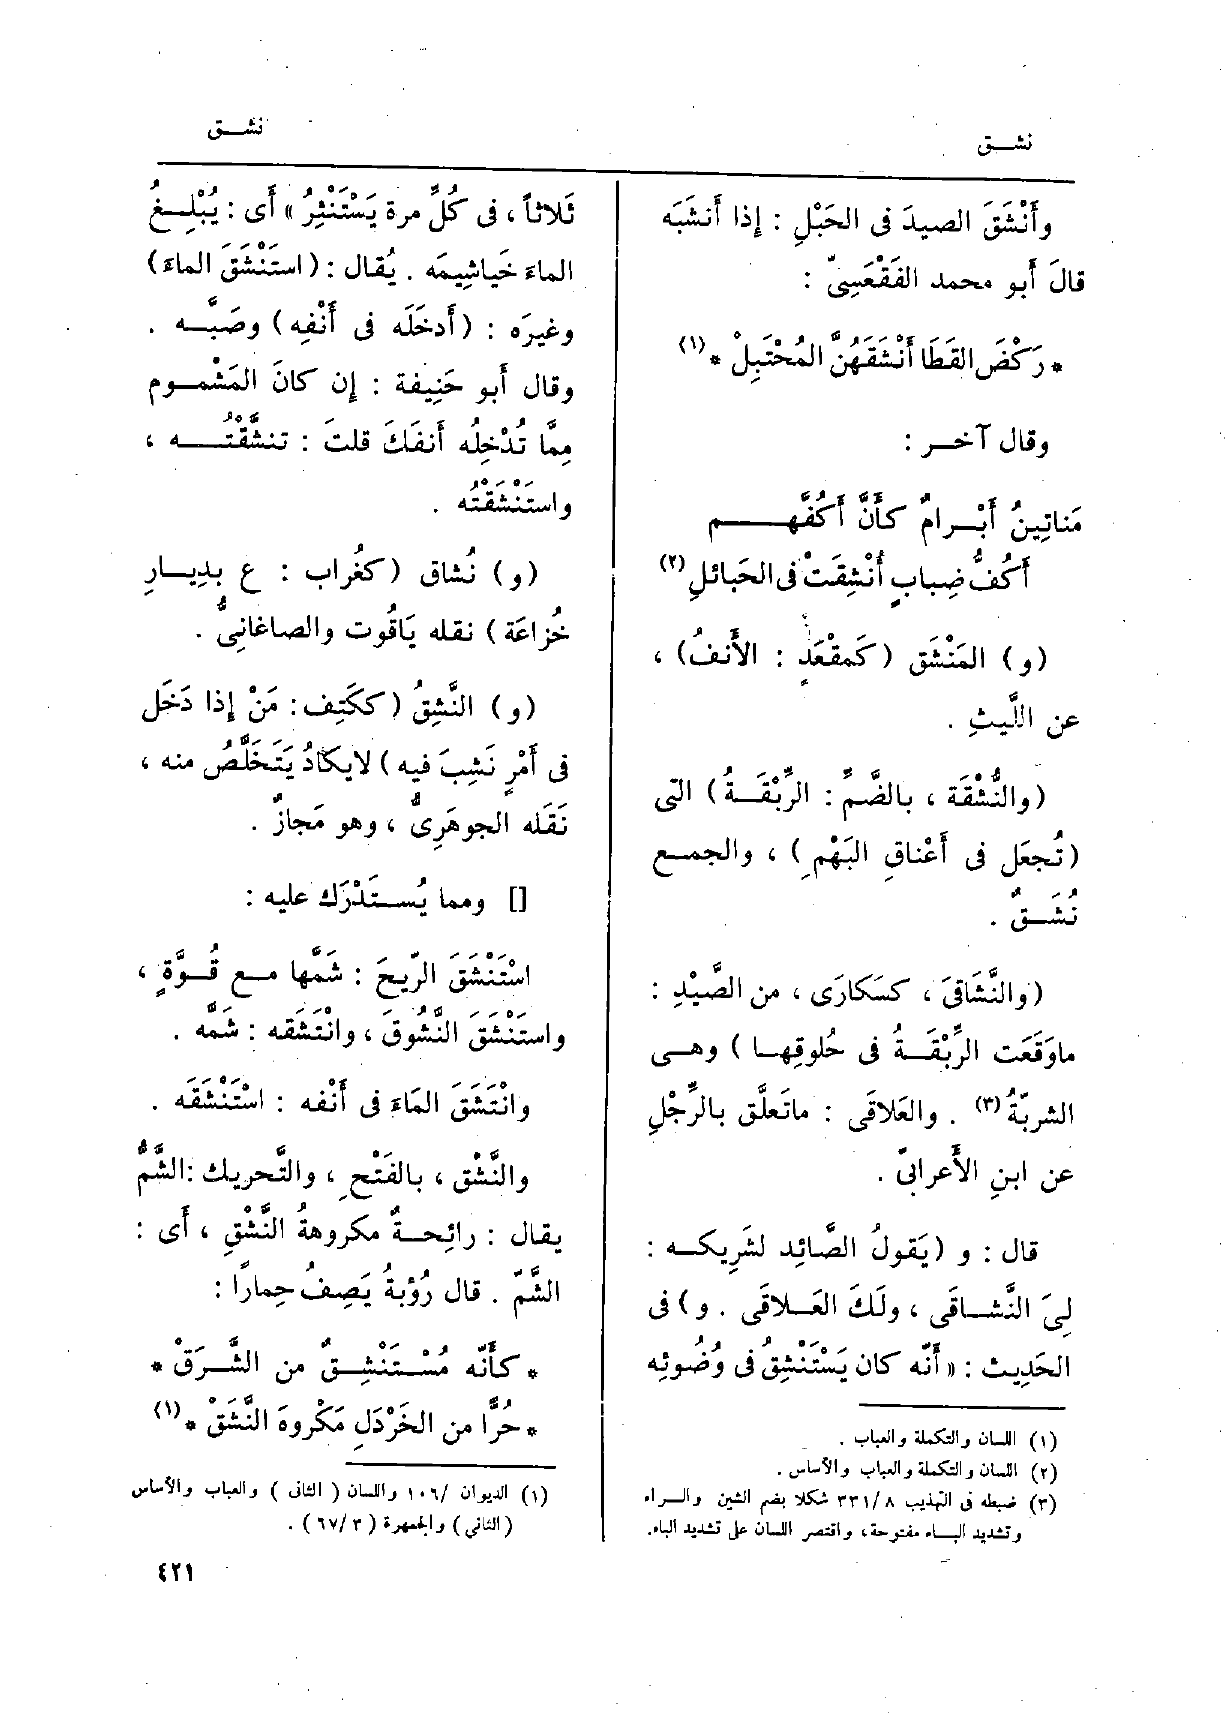 نشــق
نشــق
وأَنْشَقَ الصيدَ فى الحَبْلِ : إِذا أَنشَبَه
قالَ أَبو محمد الفَقْعَسِىّ :
* رَكْضَ القَطَا أَنْشَقَهُنَّ المُحْتَبِلْ * (١)
وقال آخــر :
مَناتِينُ أَبْــرامٌ كأَنَّ أَكُفَّهــم
أَكُفُّ ضِبابٍ أُنْشِقَتْ فى الحَبائلِ (٢)
(و) المَنْشَق (كَمقْعَدٍ : الأَنفُ) ،
عن اللَّيثِ .
(والنُّشْقَة ، بالضَّمِّ : الرِّبْقَــةُ) التى
(تُجعَل فى أَعْناقِ البَهْمِ) ، والجمــع
نُشَــقٌ .
(والنَّشَاقَى ، كسَكارَى ، من الصَّيْدِ :
ماوَقَعَت الرِّبْقَــةُ فى حُلوقِهــا ) وهــى
الشربّةُ (٣) . والعَلاقَى : ماتَعلَّق بالرِّجْلِ
عن ابنِ الأَعرابىّ .
قال : و (يَقولُ الصَّائِد لشَرِيكــه :
لِىَ النَّشــاقَى ، ولَكَ العَــلاقَى . و) فى
الحَدِيث : « أَنّه كان يَسْتَنْشِقُ فى وُضُوئِه
(١) اللسان والتكملة والعباب .
(٢) اللسان والتكملة والعباب والأساس .
(٣) ضبطه فى التهذيب ٣٣١/٨ شكلا بضم الشين والــراء
وتشديد البــاء مفتوحة، واقتصر اللسان على تشديد الباء.
ثَلاثاً ، فى كُلِّ مرة يَسْتَنْثِرُ » أَى : يُبْلِــغُ
الماءَ خَياشِيمَه . يُقال : (استَنْشَق الماءَ)
وغيرَه : (أَدخَلَه فى أَنْفِه) وصَبَّــه .
وقال أَبو حَنِيفة : إِن كانَ المَشْمــوم
مِمَّا تُدْخِلُه أَنفَكَ قلتَ : تنشَّقْتُــه ،
واستَنْشَقْتُه .
(و) نُشاق (كغُراب : ع بدِيــارِ
خُزاعَة ) نقله يَاقُوت والصاغانِىُّ .
(و) النَّشِقُ (ككَتِف : مَنْ إِذا دَخَل
فى أَمْرٍ نَشِبَ فيه) لايكادُ يَتَخَلَّصُ منه ،
نَقَله الجوهَرِىُّ ، وهو مَجازٌ .
[] ومما يُســتَدْرَك عليه :
اسْتَنْشَقَ الرِّيحَ : شَمَّها مــع قُــوَّةٍ ،
واستَنْشَق النَّشُوقَ ، وانْتَشَقه : شَمَّه .
وانْتَشَقَ المَاءَ فى أَنْفه : اسْتَنْشَقَه .
والنَّشْق ، بالفَتْحِ ، والتَّحريك :الشَّمُّ
يقال : رائِحــةٌ مكروهةُ النَّشْقِ ، أَى :
الشَّمّ . قال رُؤبةُ يَصِفُ حِمارًا :
* كأَنّه مُسْــتَنْشِــقٌ من الشَّــرَقْ *
* حُرًّا من الخَرْدَلِ مَكْروهَ النَّشَقْ * (١)
(١) الديوان /١٠٦ واللسان ( الثانى ) والعباب والأساس
(الثاني) والجمهرة (٦٧/٣) .
٤٢١